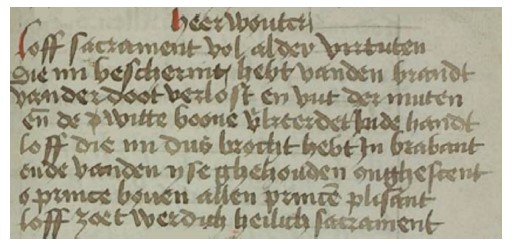 heer wouter
loff sacrament vol alder virtuten
Die mi beschermt hebt vanden brandt
vander doot verlost en wut der muten
eñ de witte boone inde handt
loff die mi dus brocht hebt In brabant
ende vanden yse ghehouden onghescent
o prince bouen allen princē plisant
loff zoet werdich heilich sacrament